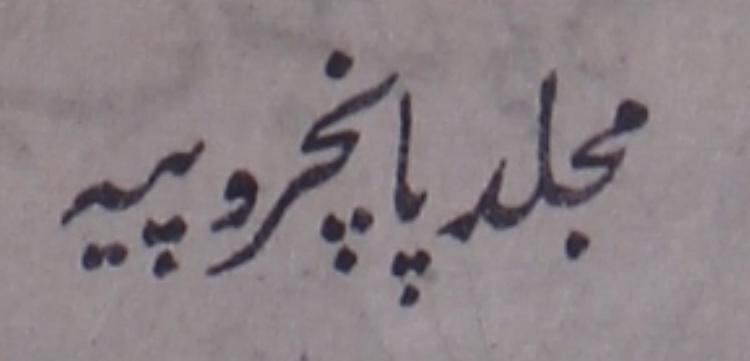 مجلد پانچروپیہ